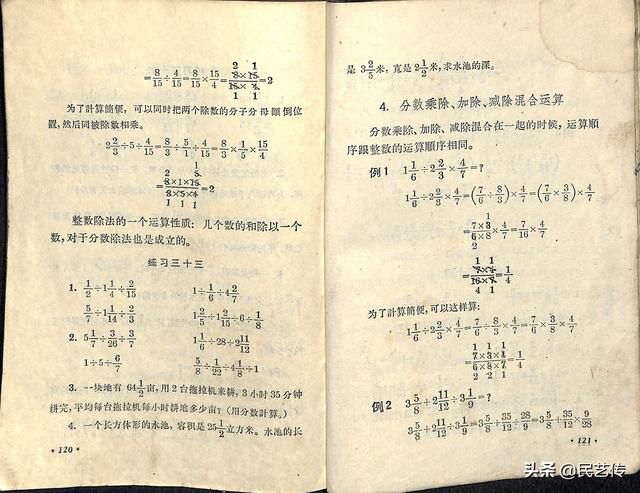 = 8/15 ÷ 4/15 = 8/15 × 15/4 = (8×15)/(15×4) = 2
为了計算簡便，可以同时把两个除数的分子分母顚倒位
置，然后同被除数相乘。
2 2/3 ÷ 5 ÷ 4/15 = 8/3 ÷ 5/1 ÷ 4/15 = 8/3 × 1/5 × 15/4
= (8×1×15)/(3×5×4) = 2
整数除法的一个运算性质：几个数的和除以一个
数，对于分数除法也是成立的。
练习三十三
1. 1/2 ÷ 1 1/4 ÷ 2/15  1 ÷ 1/6 ÷ 4 2/7
5/7 ÷ 1 1/14 ÷ 2/3  2/5 ÷ 1 2/15 ÷ 6 ÷ 1/8
2. 5 1/7 ÷ 3/26 ÷ 3/7  1 1/6 ÷ 28 ÷ 2 11/12
1 ÷ 5 ÷ 6/7  5/8 ÷ 1/22 ÷ 4 1/8 ÷ 1
3. 一块地有 64 1/2 亩，用 2 台拖拉机来耕，3 小时 35 分钟
耕完，平均每台拖拉机每小时耕地多少亩？（用分数計算。）
4. 一个长方体形的水池，容积是 25 1/2 立方米。水池的长
·120·
是 3 2/5 米，寬是 2 1/2 米，求水池的深。
4. 分数乘除、加除、减除混合运算
分数乘除、加除、减除混合在一起的时候，运算順
序跟整数的运算順序相同。
例1 1 1/6 ÷ 2 2/3 × 4/7 = ?
1 1/6 ÷ 2 2/3 × 4/7 = (7/6 ÷ 8/3) × 4/7 = (7/6 × 3/8) × 4/7
= (7×3)/(6×8) × 4/7 = 7/16 × 4/7
= (7×4)/(16×7) = 1/4
为了計算簡便，可以这样算：
1 1/6 ÷ 2 2/3 × 4/7 = 7/6 ÷ 8/3 × 4/7 = 7/6 × 3/8 × 4/7
= (7×3×4)/(6×8×7) = 1/4
例2 3 5/8 + 2 11/12 ÷ 3 1/9 = ?
3 5/8 + 2 11/12 ÷ 3 1/9 = 3 5/8 + 35/12 ÷ 28/9 = 3 5/8 + 35/12 × 9/28
·121·
头条 @民艺传